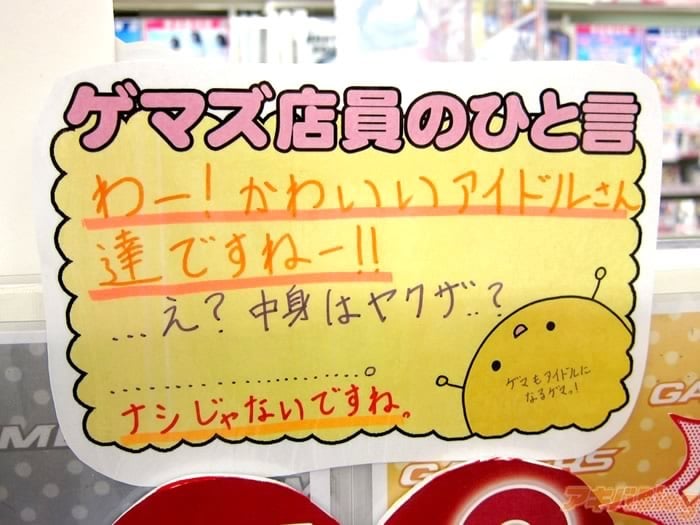 ゲマズ店員のひと言
わー!かわいいアイドルさん
達ですねー!!
...え?中身はヤクザ..?
....................。
ナシじゃないですね。
ゲマもアイドルに
なるゲマっ!